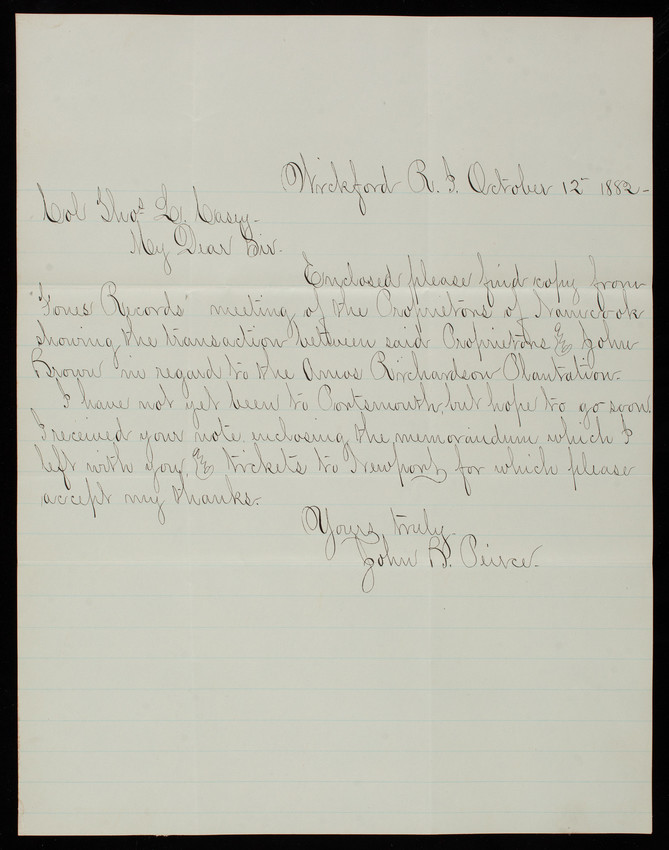 Wickford R. I. October 12- 1882-
Col Thos L. Casey-
My Dear Sir.
Enclosed please find copy from
"Fones Records" meeting of the Proprietors of Namcook
showing the transaction between said Proprietors & John
Brown in regard to the Amos Richardson Plantation.
I have not yet been to Portsmouth, but hope to go soon.
I received your note enclosing the memorandum which I
left with you, & tickets to Newport, for which please
accept my thanks.
Yours truly
John B. Peirce.